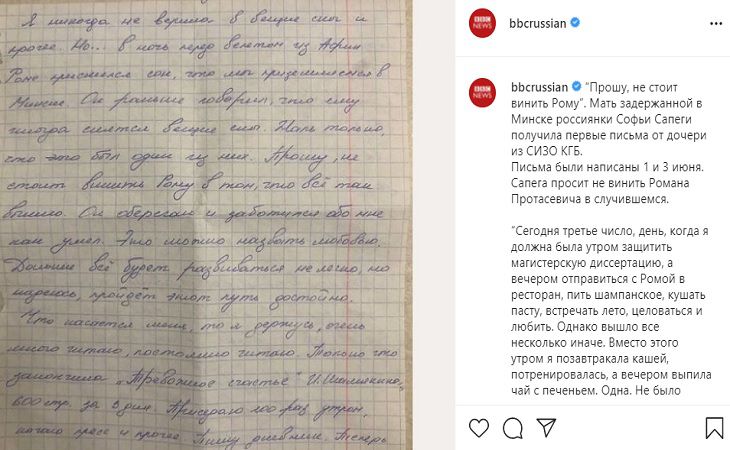 Я никогда не верила в вещие сны и
прочее. Но... в ночь перед вылетом из Афин
Роме приснился сон, что мы приземляемся в
Минске. Он раньше говорил, что ему
иногда снятся вещие сны. Жаль только,
что это был один из них. Прошу, не
стоит винить Рому в том, что всё так
вышло. Он оберегал и заботился обо мне
как умел. Это можно назвать любовью.
Дальше всё будет развиваться не легко, но
надеюсь, пройдёт этот путь достойно.
Что касается меня, то я держусь, очень
много читаю, постоянно читаю. Только что
закончила „Тревожное счастье" И. Шамякина,
600 стр. за 3 дня. Приседаю 100 раз утром,
качаю пресс и прочее. Пишу дневник. Теперь
BBC
NEWS
bbcrussian
BBC
NEWS
bbcrussian “Прошу, не стоит
винить Рому”. Мать задержанной в
Минске россиянки Софьи Сапеги
получила первые письма от дочери
из СИЗО КГБ.
Письма были написаны 1 и 3 июня.
Сапега просит не винить Романа
Протасевича в случившемся.
“Сегодня третье число, день, когда я
должна была утром защитить
магистерскую диссертацию, а
вечером отправиться с Ромой в
ресторан, пить шампанское, кушать
пасту, встречать лето, целоваться и
любить. Однако вышло все
несколько иначе. Вместо этого
утром я позавтракала кашей,
потренировалась, а вечером выпила
чай с печеньем. Одна. Не было